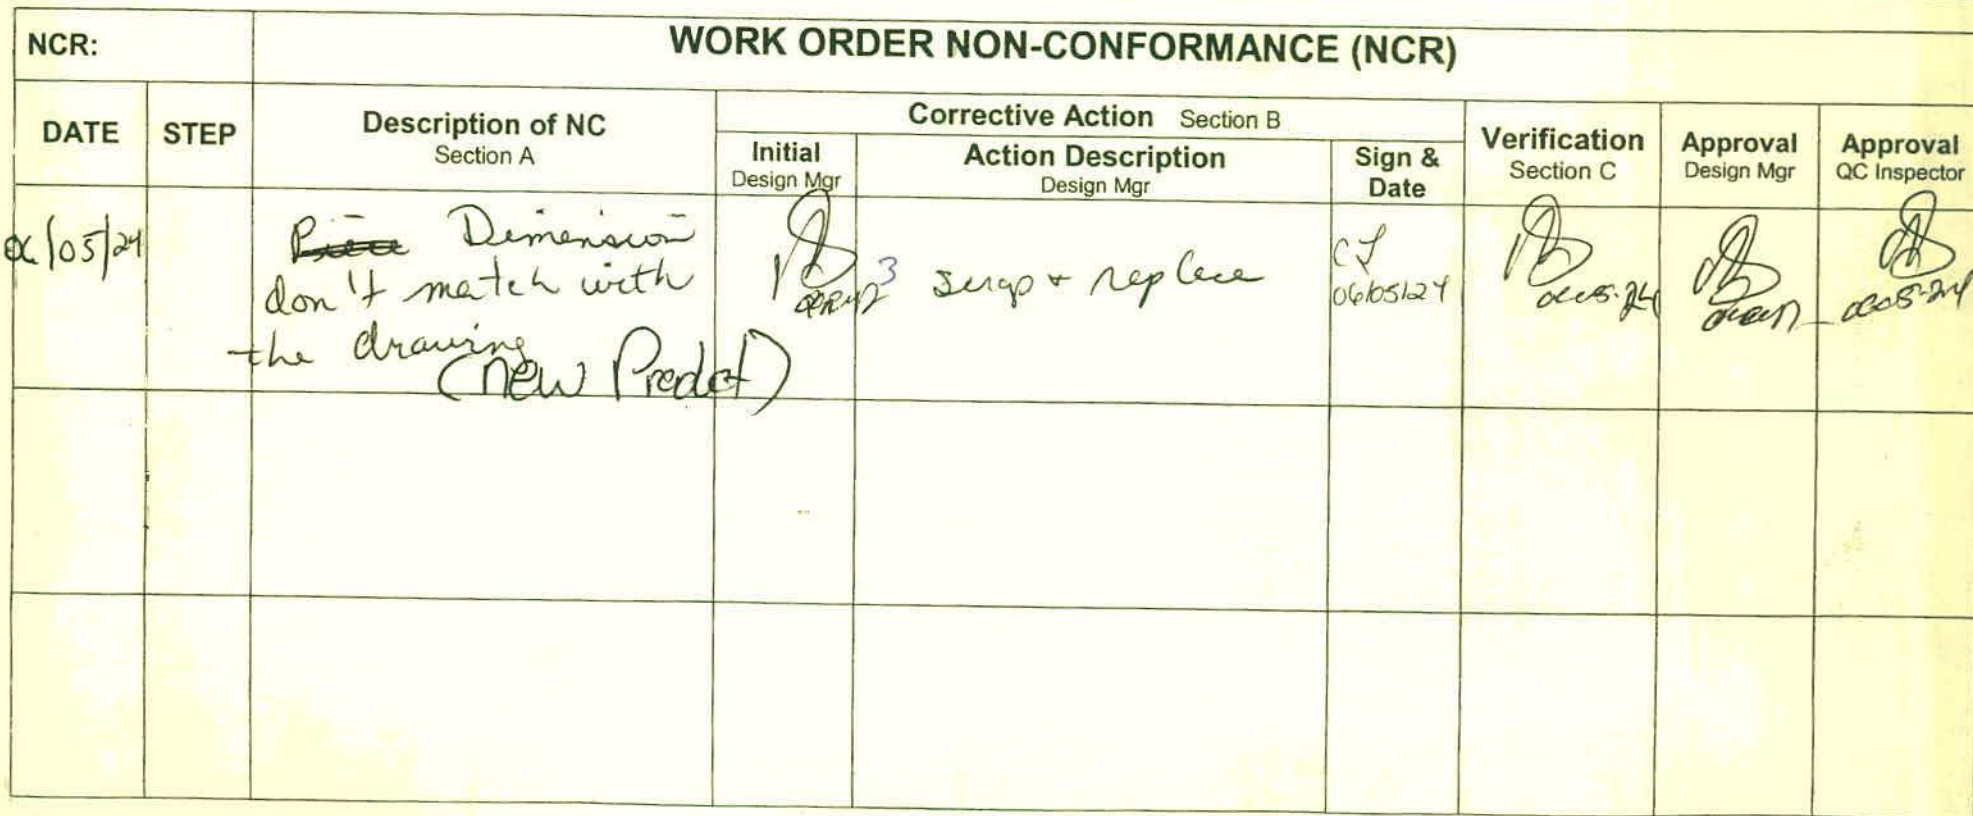 NCR:
WORK ORDER NON-CONFORMANCE (NCR)
DATE
STEP
Description of NC
Section A
Corrective Action Section B
Initial
Design Mgr
Action Description
Design Mgr
Sign &
Date
Verification
Section C
Approval
Design Mgr
Approval
QC Inspector
06/05/24
Dimension
don't match with
the drawing
(new Prodct)
3 scrap + replace
CJ
06/05/24
06-05-24
06-05-24